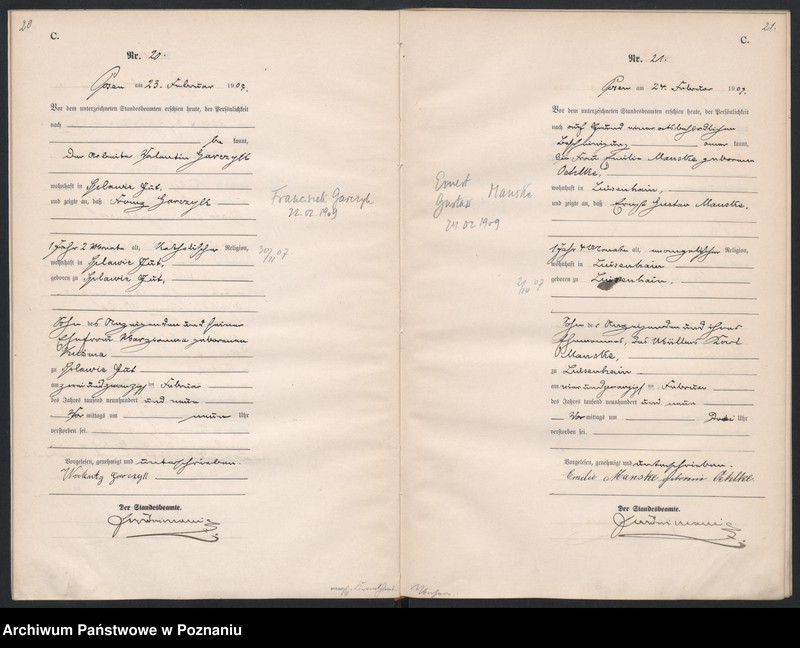 20
C.
Nr. 20.
Posen am 23. Februar 1909.
Vor dem unterzeichneten Standesbeamten erschien heute, der Persönlichkeit
nach
be kannt,
der Arbeiter Valentin Garczyk
wohnhaft in Gut,
und zeigte an, daß Franz Garczyk
Franciszek Garczyk
22.02.1909
1 Jahr 2 Monate alt, katholischer Religion,
wohnhaft in Gut,
geboren zu Gut,
Sohn des Anzeigenden und seiner
Ehefrau Marianna geborenen
zu Gut
am zwei und zwanzigsten Februar
des Jahres tausend neunhundert und neun
Vor mittags um neun Uhr
verstorben sei.
Vorgelesen, genehmigt und unterschrieben.
Garczyk
Der Standesbeamte.
21.
C.
Nr. 21.
Posen am 24. Februar 1909.
Vor dem unterzeichneten Standesbeamten erschien heute, der Persönlichkeit
nach auf Grund einer ortsbehördlichen
Bescheinigung, kannt,
die Frau Emilie Manske geborenen
Oehlke,
wohnhaft in Luisenhain,
und zeigte an, daß Ernst Gustav Manske,
Ernest
Gustaw Manske
02 1909
1 Jahr 4 Monate alt, evangelischer Religion,
wohnhaft in Luisenhain
geboren zu Luisenhain,
Sohn der Anzeigenden und ihres
Ehemannes, des Müllers Karl
Manske,
zu Luisenhain
am vier und zwanzigsten Februar
des Jahres tausend neunhundert und neun
Vor mittags um Drei Uhr
verstorben sei.
Vorgelesen, genehmigt und unterschrieben.
Emilie Manske geborene Oehlke
Der Standesbeamte.
Archiwum Państwowe w Poznaniu